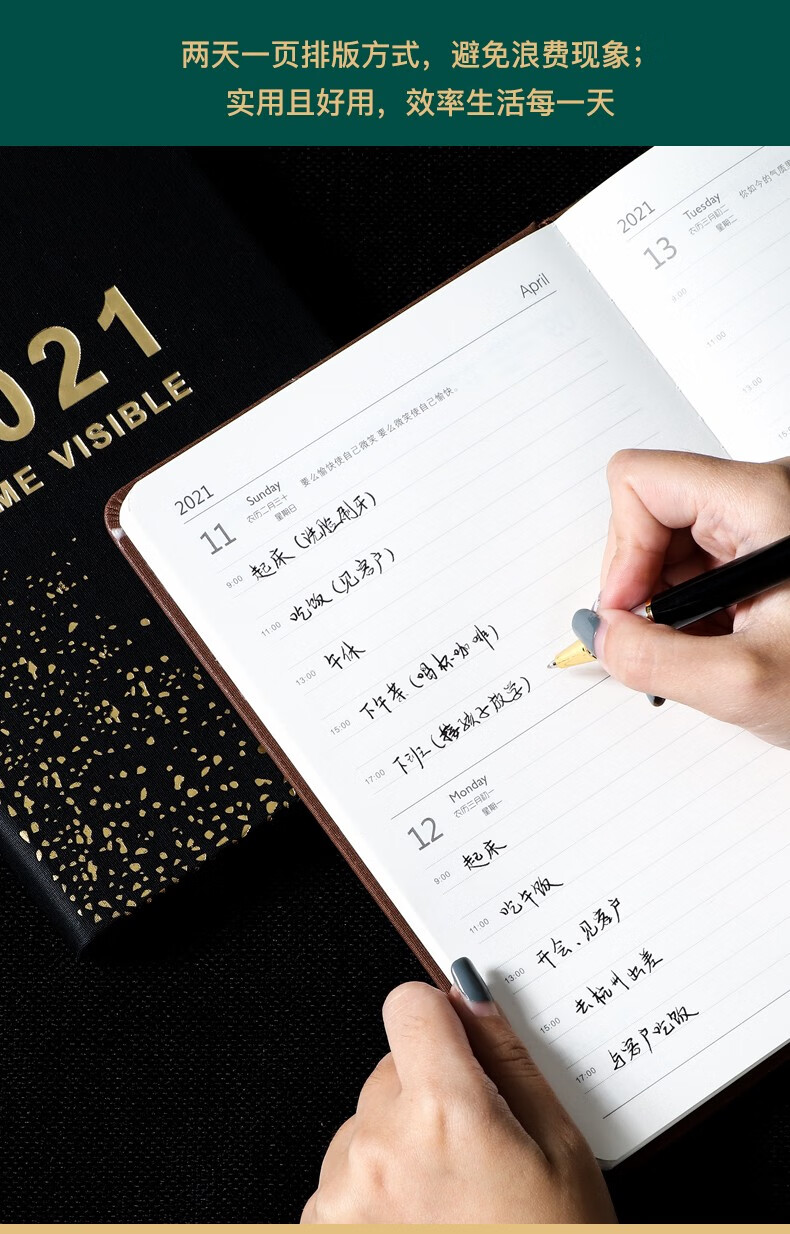 两天一页排版方式，避免浪费现象；
实用且好用，效率生活每一天
021
ME VISIBLE
April
2021
11
Sunday
农历二月三十
星期日
要么愉快使自己微笑 要么微笑使自己愉快。
9:00 起床（洗脸刷牙）
11:00 吃饭（见客户）
13:00 午休
15:00 下午茶（喝杯咖啡）
17:00 下班（接孩子放学）
12
Monday
农历三月初一
星期一
9:00 起床
11:00 吃午饭
13:00 开会、见客户
15:00 去杭州出差
17:00 与客户吃饭
2021
13
Tuesday
农历三月初二
星期二
你如今的气质里
9:00
11:00
13:00